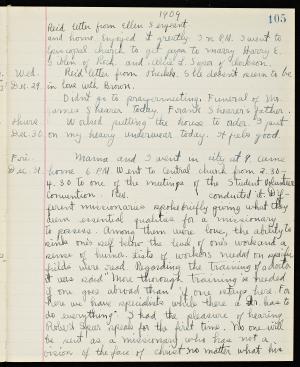 1909
105
Rec'd letter from Ellen Sargent
and home. Enjoyed it greatly. 3 P.M. I went to
church to get papa to marry Harry E.
of Reid. and of Jackson.
Wed. Rec'd letter from Thelda. She doesn't seem to be
Dec. 29. in love with Brown.
Didn't go to prayermeeting. Funeral of Mr.
James Shearer today. Frank Shearer's father.
Thurs. Worked putting the house to order. I put
Dec. 30. on my heavy underwear today. It feels good.
Fri. Mama and I went in city at 9. Came
Dec. 31. home 6 P.M. Went to Central church from 2.30-
4.30 to one of the meetings of the Student Volunteer
Convention. Rev. conducted it. Dif-
ferent missionaries spoke briefly giving what they
deem essential qualities for a missionary
to possess. Among them were love, the ability to
sink one's self below the level of one's work and a
sense of humor. Lists of workers needed on specific
fields were read. Regarding the training of a doctor
it was said "More thorough training is needed
if one goes abroad than if one stays here. For
here we have specialists while there a Dr. has to
do everything." I had the pleasure of hearing
Robert Speer speak for the first time. No one will
be sent as a missionary who has not a
vision of the face of Christ no matter what his